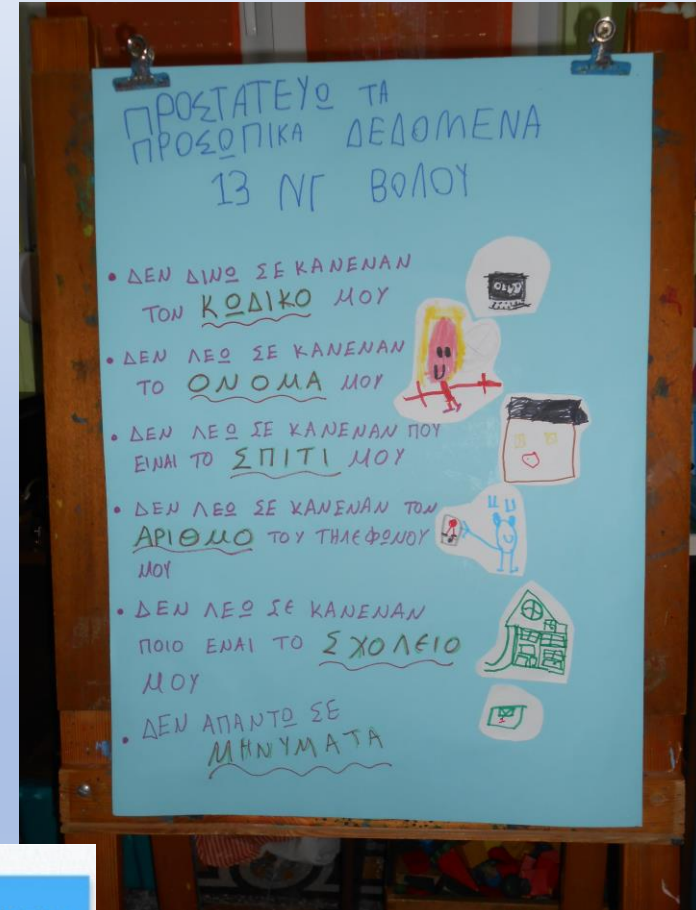 ΠΡΟΣΤΑΤΕΥΩ ΤΑ
ΠΡΟΣΩΠΙΚΑ ΔΕΔΟΜΕΝΑ
13 ΝΓ ΒΟΛΟΥ
• ΔΕΝ ΔΙΝΩ ΣΕ ΚΑΝΕΝΑΝ
ΤΟΝ ΚΩΔΙΚΟ ΜΟΥ
• ΔΕΝ ΛΕΩ ΣΕ ΚΑΝΕΝΑΝ
ΤΟ ΟΝΟΜΑ ΜΟΥ
• ΔΕΝ ΛΕΩ ΣΕ ΚΑΝΕΝΑΝ ΠΟΥ
ΕΙΝΑΙ ΤΟ ΣΠΙΤΙ ΜΟΥ
• ΔΕΝ ΛΕΩ ΣΕ ΚΑΝΕΝΑΝ ΤΟΝ
ΑΡΙΘΜΟ ΤΟΥ ΤΗΛΕΦΩΝΟΥ
ΜΟΥ
• ΔΕΝ ΛΕΩ ΣΕ ΚΑΝΕΝΑΝ
ΠΟΙΟ ΕΝΑΙ ΤΟ ΣΧΟΛΕΙΟ
ΜΟΥ
• ΔΕΝ ΑΠΑΝΤΩ ΣΕ
ΜΗΝΥΜΑΤΑ